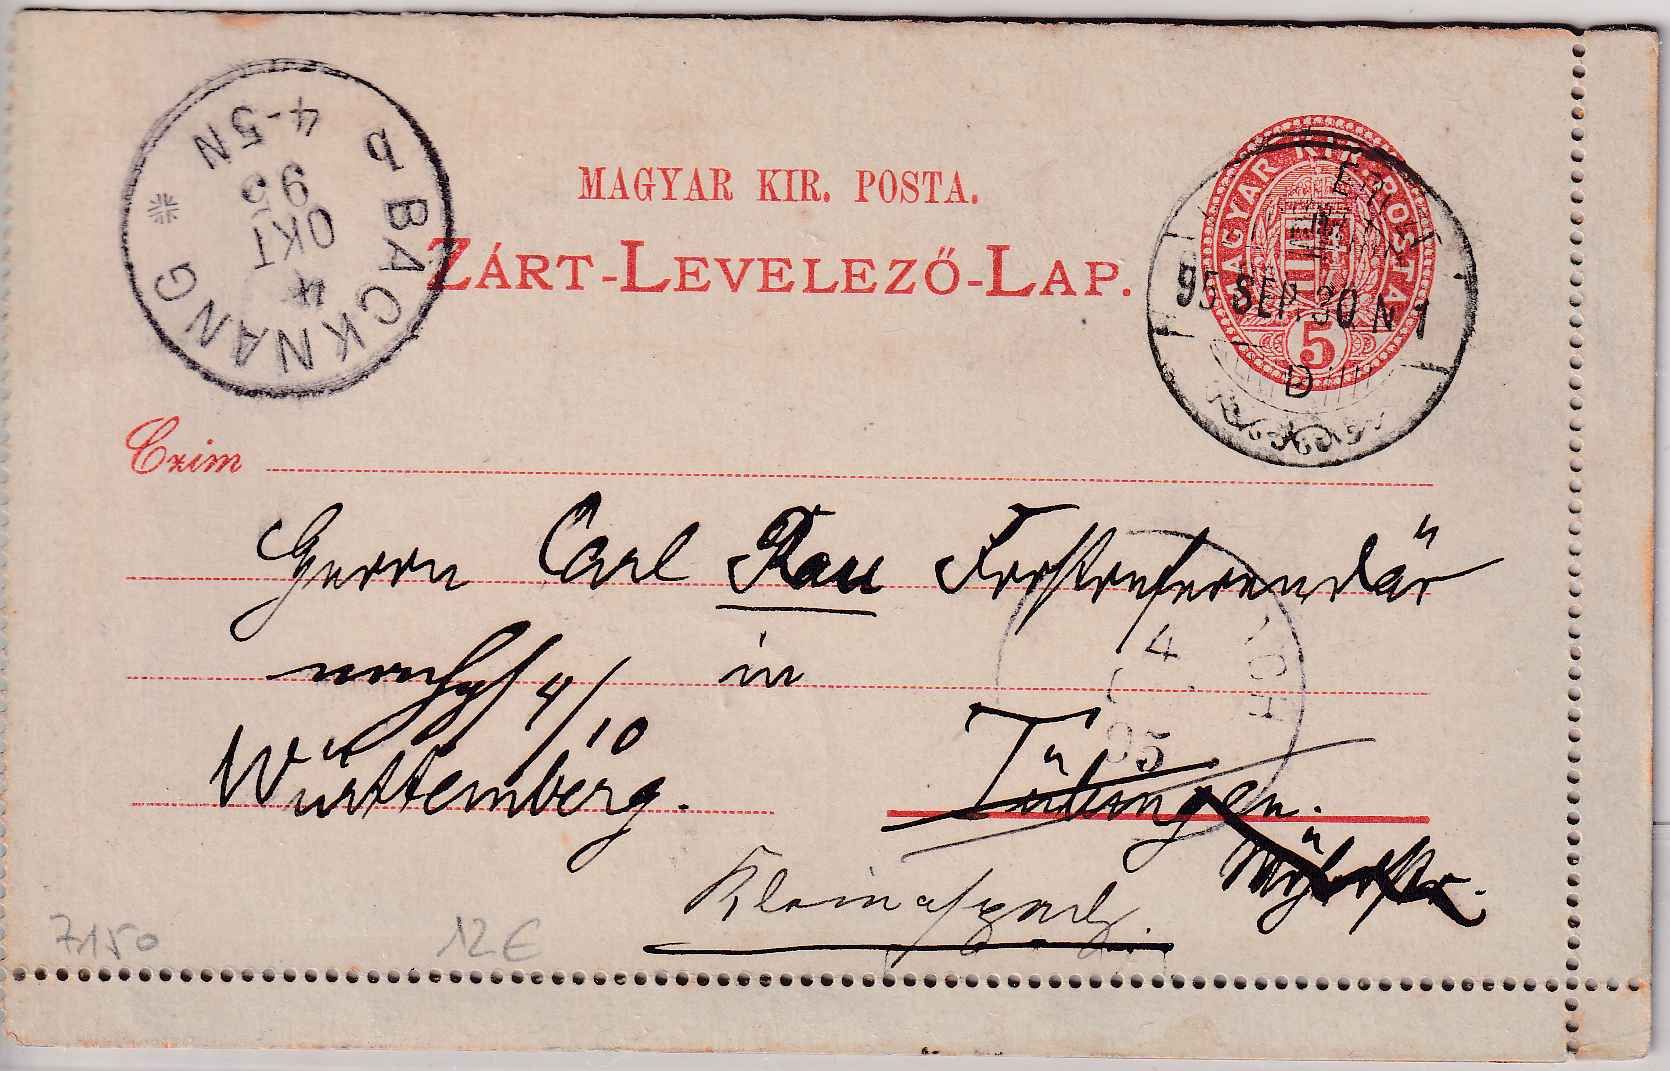 BACKNANG
4-5N
4
OKT
95
MAGYAR KIR. POSTA.
ZÁRT-LEVELEZŐ-LAP.
MAGYAR KIR. POSTA
5
95 SEP. 30 N 1
D
Czim
Herrn Carl Rau Forstreferendär
4/10 in
Württemberg. Tübingen.
Kleinaspach.
4
95
7150
12 €